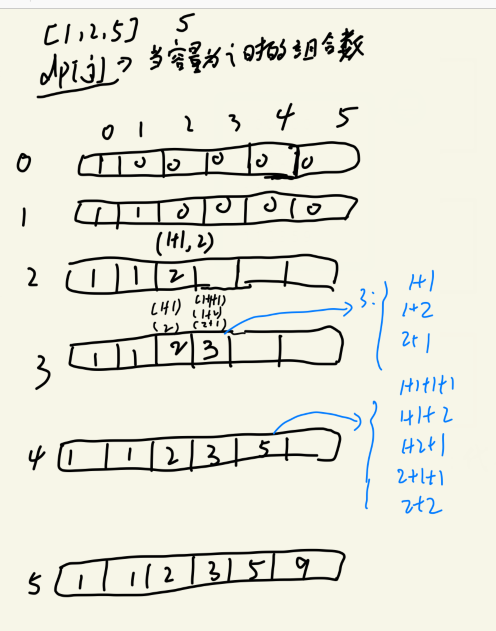 [1,2,5] 5
dp[j] → 当容量为i时的组合数
0 1 2 3 4 5
0 1 0 0 0 0 0
1 1 1 0 0 0 0
(1+1, 2)
2 1 1 2
(1+1) (1+1+1)
(2) (1+2) (2+1)
3 1 1 2 3
3: 1+1
1+2
2+1
4 1 1 2 3 5
1+1+1+1
1+1+2
1+2+1
2+1+1
2+2
5 1 1 2 3 5 9